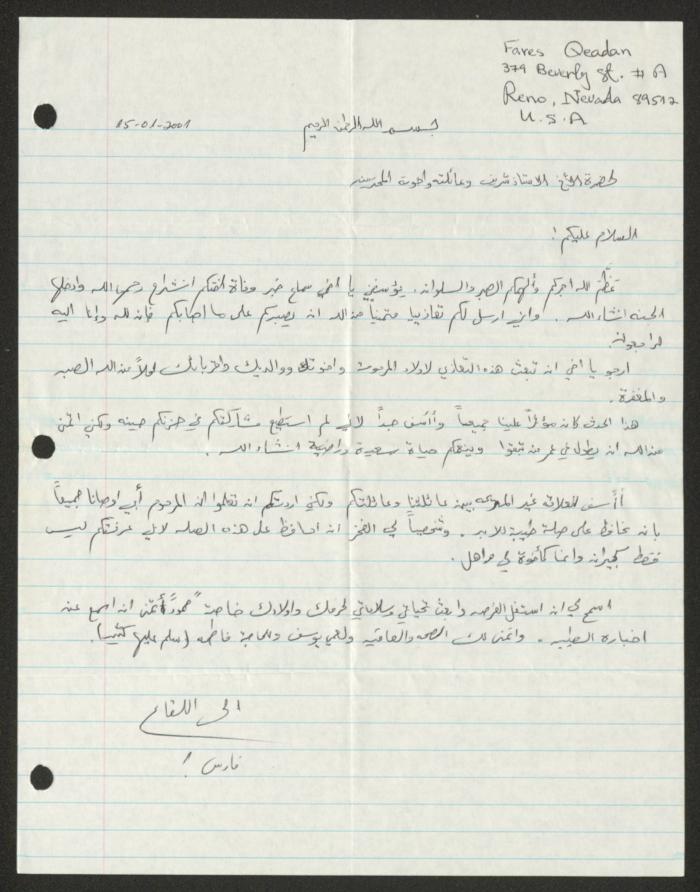 Fares Qeadan
379 Beverly St. # A
Reno, Nevada 89512
U.S.A
بسم الله الرحمن الرحيم
15-01-2001
لحضرة الأخ الاستاذ شريف وعائلته واخوته المحترمين
السلام عليكم!
عظّم الله اجركم وألهمكم الصبر والسلوان. يؤسفني يا اخي سماع خبر وفاة اختكم انشراح رحمها الله وادخلها
الجنه انشاء الله. واني ارسل لكم تعازينا متمنياً من الله ان يصبركم على ما اصابكم فإن لله وإنا اليه
لراجعون.
ارجو يا اخي ان تبعث هذه التعازي لاولاد المرحومة واخوتك ووالديك واقربائك املاً من الله الصبر
والمغفرة.
هذا الحدث كان مؤثراً علينا جميعاً وأأسف جداً لاني لم استطع مشاركتكم في حزنكم حينه ولكني اتمنى
من الله ان يطول في عمر من تبقوا ويمنحهم حياة سعيدة وراضية انشاء الله.
أأسف للعلاقة غير بين عائلتنا وعائلتكم ولكني اردتكم ان تعلموا ان المرحوم أبي اوصانا جميعاً
بان نحافظ على صلة طيبة للابد. وشخصياً لي الفخر ان احافظ على هذه الصله لاني عرفتكم ليس
فقط كجيران وانما كأخوة لي مراحل.
اسمح لي ان استغل الفرصه وابعث تحياتي وسلاماتي لحرمك واولادك خاصة "محمود" أتمنى ان اسمع عنه
اخباره الطيبه. واتمنى لك الصحه والعافيه ولعمي يوسف والحاجة فاطمه (سلم عليها كثيراً).
الى اللقاء
فارس!